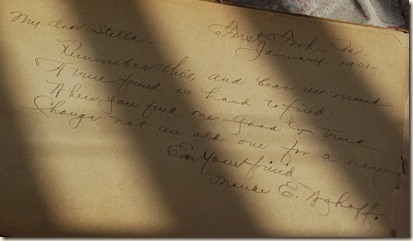 My dear Stella:-
January 1901-
Remember this, and bear in mind
A true friend is hard to find.
When you find one good & true
Change not an old one for a new
Your friend
E.